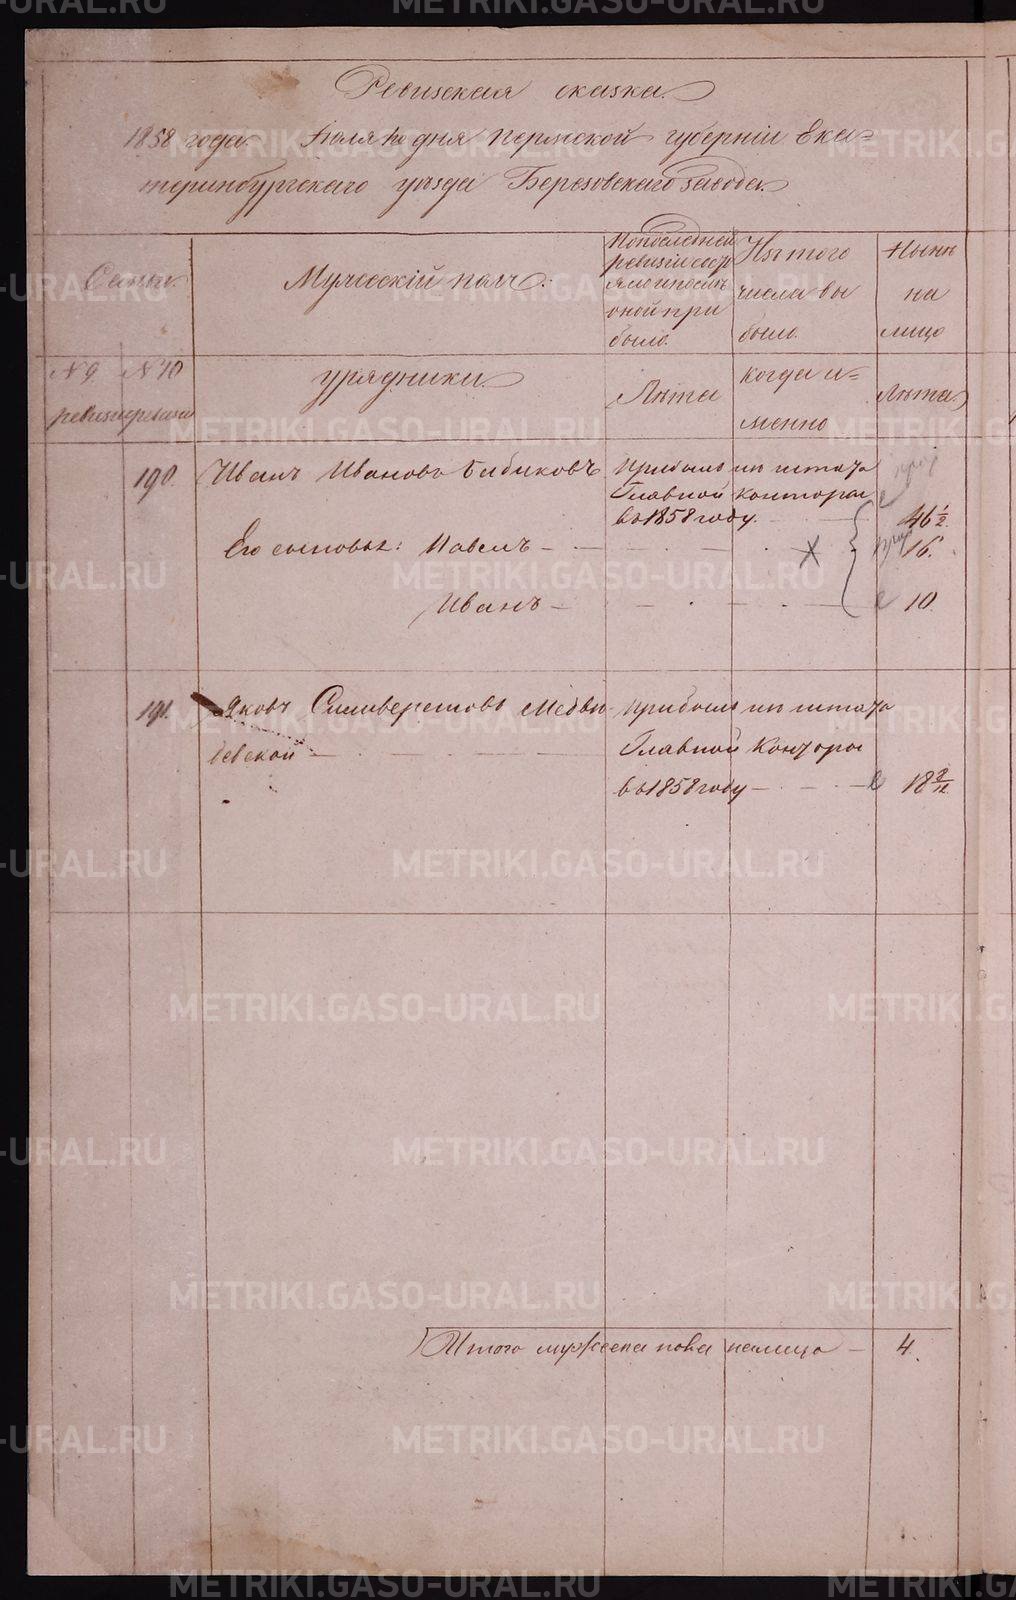 Ревизская сказка.
1858 года. Июля 10 дня Пермской губернiи Ека-
теринбургскаго уѣзда Березовскаго завода.
Семьи.
Мужескiй полъ.
По последней
ревизiи состо
яло и послѣ
оной при
было.
Изъ того
числа вы
было.
Нынѣ
на
лицо
N 9 N 10
ревизiи ревизiи
урядники.
Лѣта
когда и-
менно
Лѣта.
190. Иванъ Ивановъ Бибиковъ Прибылъ изъ штата
Главной Конторы
въ 1858 году. 46 1/2
Его сыновья: Павелъ 16.
Иванъ 10.
191. Яковъ Силиверстовъ Медвѣ- прибылъ изъ штата
Главной Конторы
въ 1858 году 18
Итого мужеска пола налицо 4.
METRIKI.GASO-URAL.RU